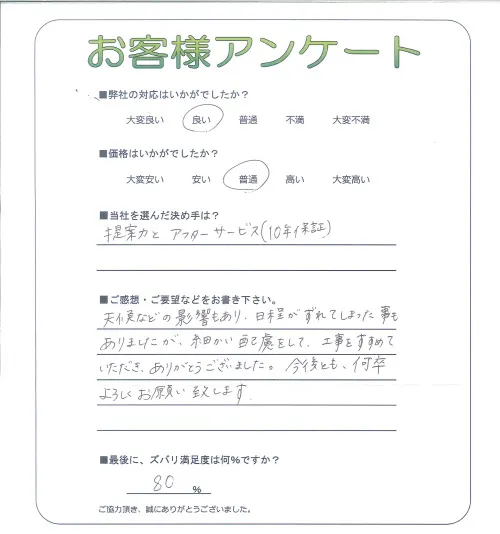 お客様アンケート
■弊社の対応はいかがでしたか？
大変良い 良い 普通 不満 大変不満
■価格はいかがでしたか？
大変安い 安い 普通 高い 大変高い
■当社を選んだ決め手は？
提案力と アフターサービス(10年保証)
■ご感想・ご要望などをお書き下さい。
天候などの影響もあり、日程がずれてしまった事も
ありましたが、細かい配慮をして、工事をすすめて
いただき、ありがとうございました。今後とも、何卒
よろしくお願い致します.
■最後に、ズバリ満足度は何％ですか？
80 %
ご協力頂き、誠にありがとうございました。